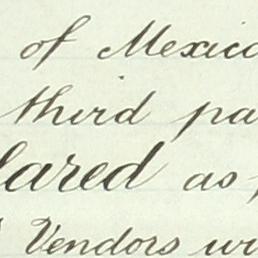 of Mexico
third pa
lared as
Vendors wi